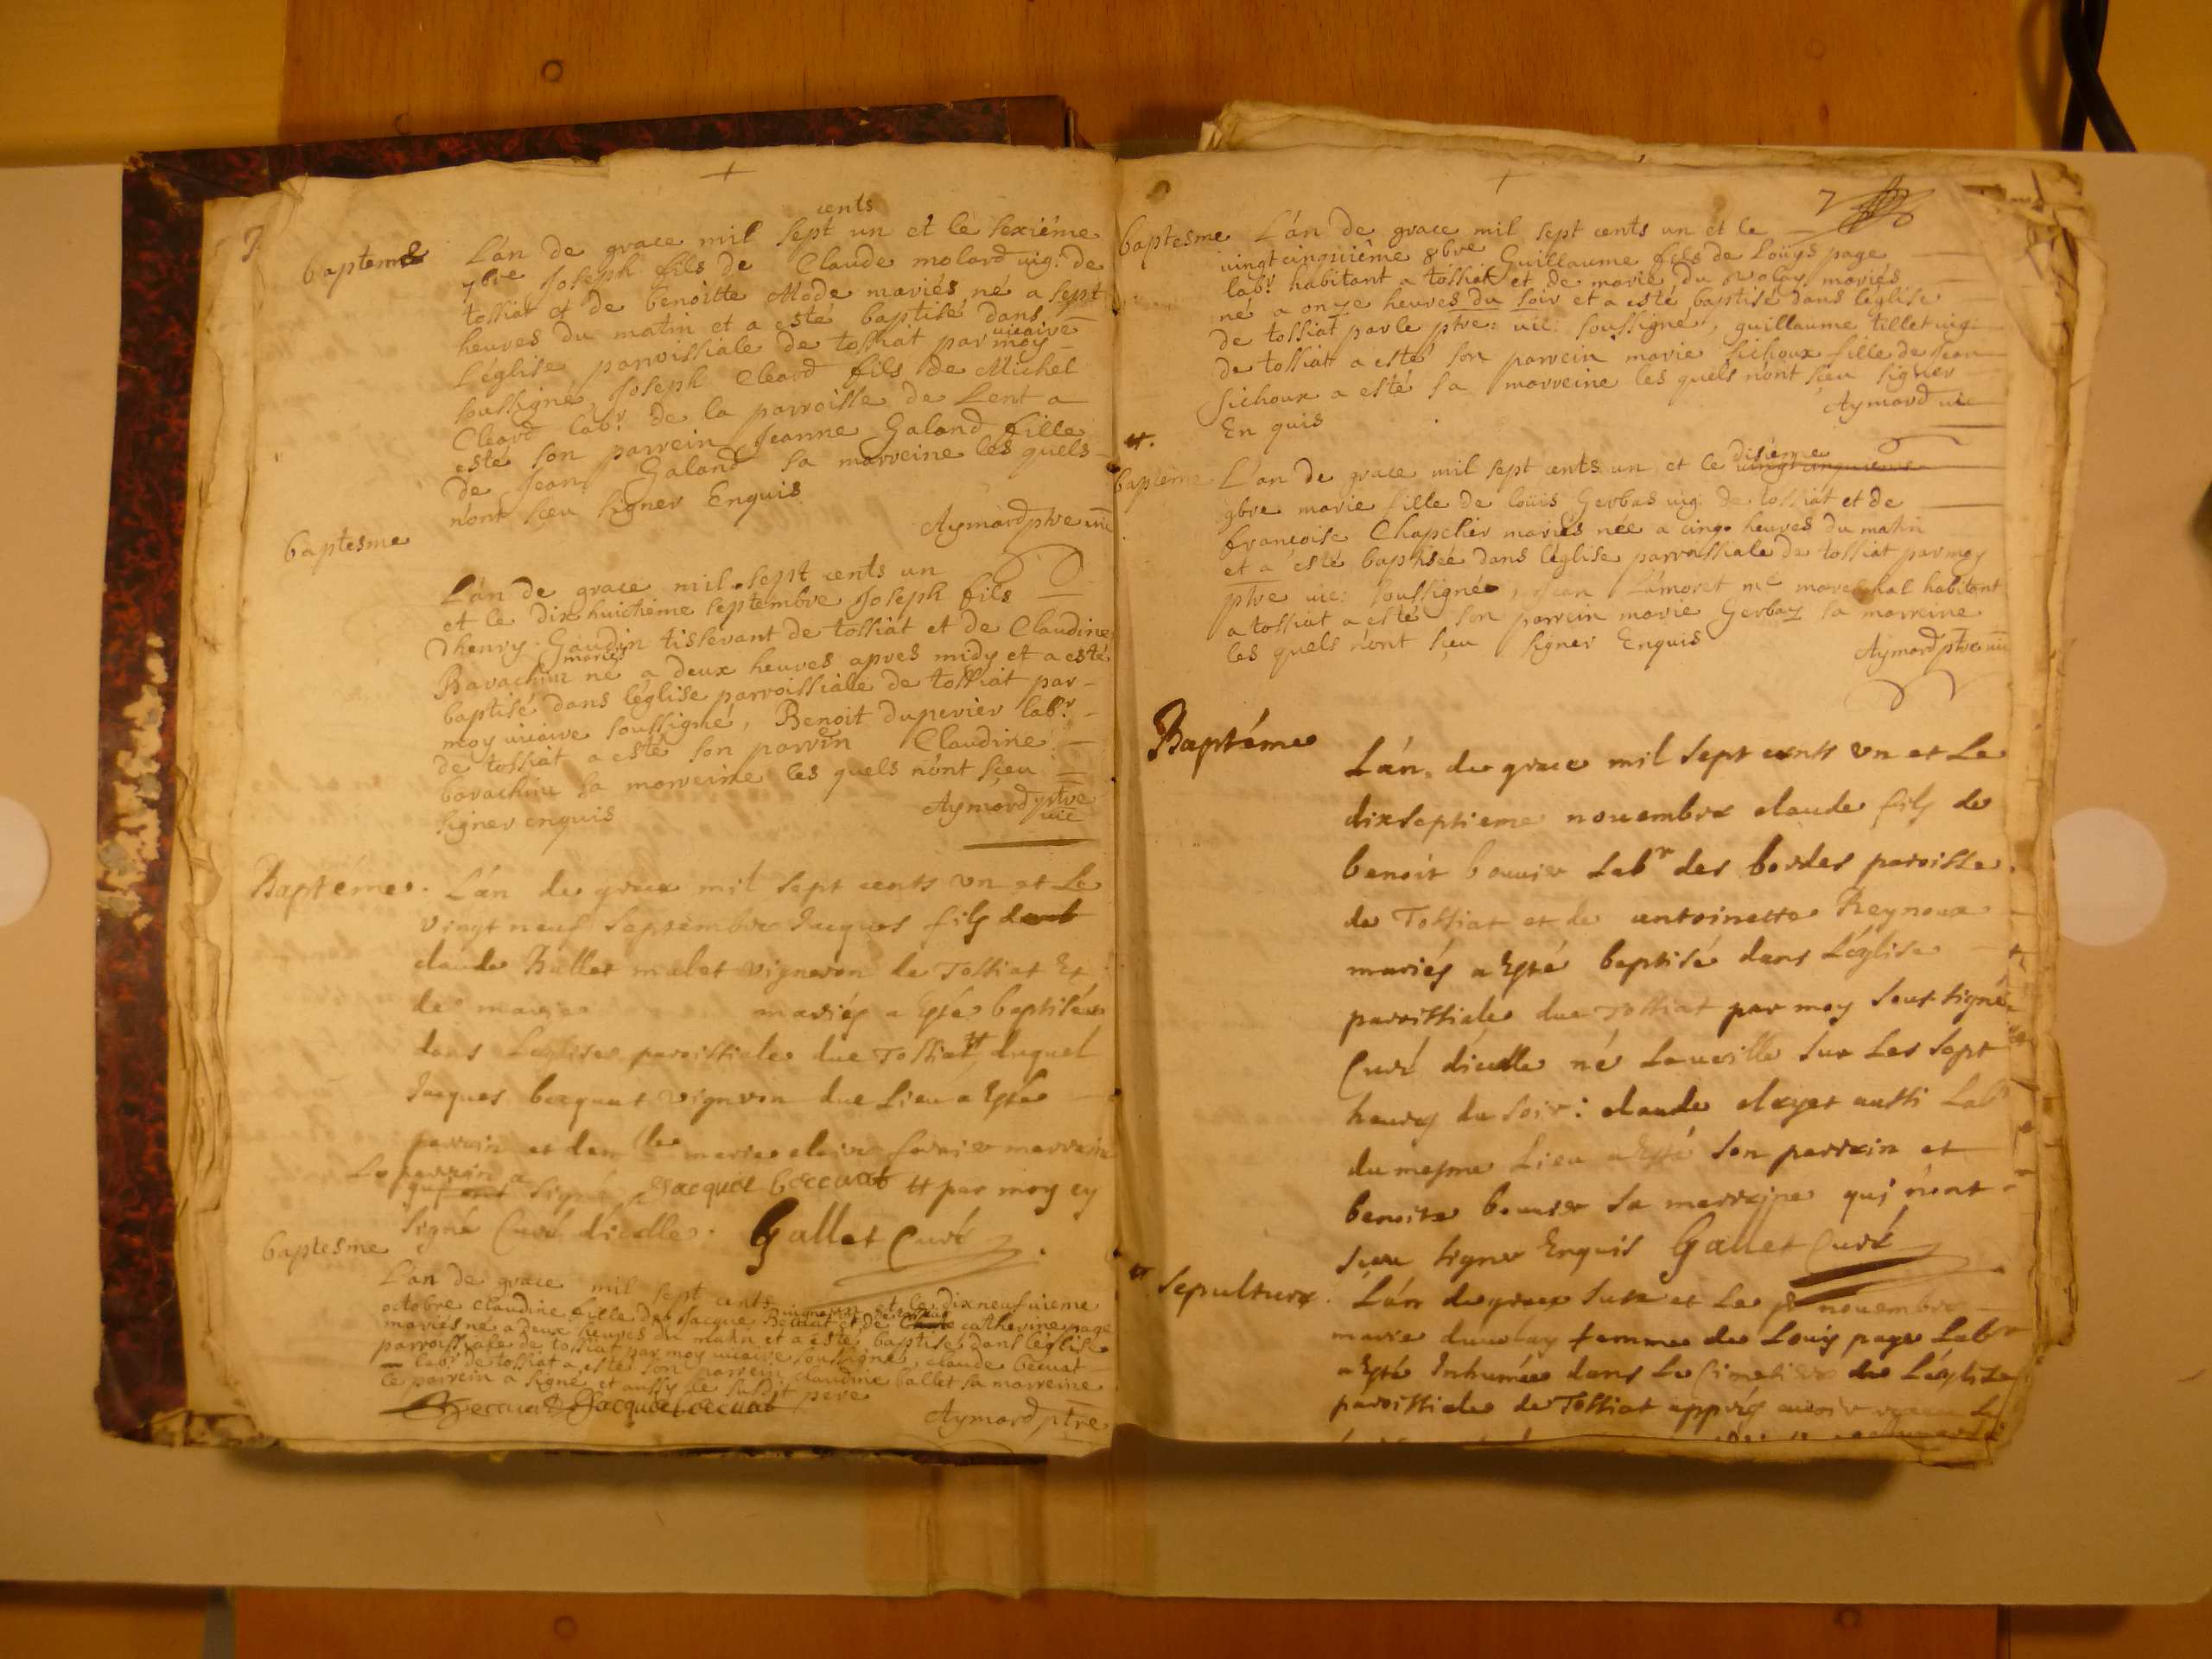 bapteme
cents
L'an de grace mil sept un et le sexiéme
7bre Joseph fils de Claude molard vig: de
tossiat et de benoitte Mode mariés né a sept
heures du matin et a esté baptisé dans
L'église parroissiale de tossiat par moy vicaire
soussigné, Joseph Cleard fils de Michel
Cleard labr. de la parroisse de Lent a
esté son parrein Jeanne Galand fille
de Jean Galand sa marreine les quels
n'ont sceu signer Enquis
Aymard ptre vic
baptesme
L'an de grace mil sept cents un
et le dix huictiéme septembre Joseph fils
d'henry Gaudin tisserant de tossiat et de Claudine
Barachin mariés né a deux heures apres midy et a esté
baptisé dans l'église parroissiale de tossiat par
moy vicaire soussigné, Benoit duperier labr.
de tossiat a esté son parrein Claudine
barachin sa marreine les quels n'ont sceu
signer enquis
Aymard ptre vic
Baptéme. L'án de grace mil sept cents vn et Le
vingt neuf Septembre Jacques fils
claude Ballet vigneron de Tossiat Et
de marie mariés a Esté baptisé
dans L'eglise paroissiale de Tossiat # duquel
Jacques becquat vigneron du Lieu a Esté
parrain et marie claire marraine
Le parrain a signé Jacque beccuat # par moy cy
signé Curé d'icelle. Gallet Curé
baptesme
L'an de grace mil sept cents et le dixneufuieme
octobre claudine fille de Jacque Becuat vigneron de tossiat et de catherine page
mariés né a deux heures du matin et a esté baptisé dans l'église
parroissiale de tossiat par moy vicaire soussigné, claude becuat
labr de tossiat a esté son parrein claudine ballet sa marreine
le parrein a signé et aussy le susdit pere
Beccuat Jacque beccuat
Aymard ptre
7
baptesme L'án de grace mil sept cents un et le
vingt cinquiéme 8bre Guillaume fils de Loüys page
labr. habitant a tossiat et de marie du volay mariés
né a onze heures du soir et a esté baptisé dans l'église
de tossiat par le ptre: vic: soussigné, guillaume tillet vig:
de tossiat a esté son parrein marie sichoux fille de Jean
sichoux a esté sa marreine les quels n'ont sceu signer
En quis
Aymard vic
baptéme L'an de grace mil sept cents un et le disiéme vingt cinquieme
9bre marie fille de loüis Gerbas vig. de tossiat et de
francoise Chapelier mariés née a cinq heures du matin
et a esté baptisée dans l'église parroissiale de tossiat par moy
ptre vic: soussigné, Jean Lamoret me marechal habitant
a tossiat a esté son parrein marie Gerbaz sa marreine
les quels n'ont sceu signer Enquis
Aymard ptre vic
Baptéme
L'án de grace mil sept cents vn et Le
dixseptieme nouembre claude fils de
benoit bouuier Labr des bordes paroisse
de Tossiat et de antoinette Reynoux
mariés a Esté baptisé dans L'église
paroissiale de Tossiat par moy soussigné
Curé d'icelle né La ueille sur Les sept
heures du soir: claude clayet aussi Labr
du mesme Lieu a Esté son parrain et
benoite bouuier sa marraine qui n'ont
sceu signer Enquis Gallet Curé
Sepulture. L'án de grace susd et Le nouembre
marie duuolay femme de Louis page Labr
a Esté Inhumée dans Le Cimetiere de L'église
paroissiale de Tossiat apprés auoir